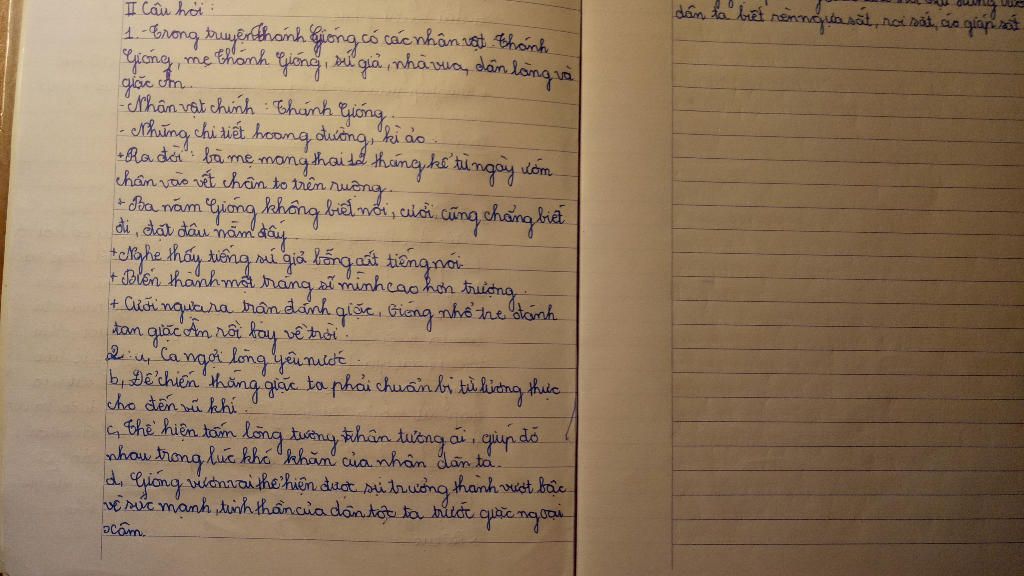 II Câu hỏi :
1. - Trong truyện Thánh Gióng có các nhân vật : Thánh
Gióng, mẹ Thánh Gióng, sứ giả, nhà vua, dân làng và
giặc Ân.
- Nhân vật chính : Thánh Gióng.
- Những chi tiết hoang đường, kì ảo.
+ Ra đời : bà mẹ mang thai 12 tháng kể từ ngày ướm
chân vào vết chân to trên ruộng.
+ Ba năm Gióng không biết nói, cười, cũng chẳng biết
đi, đặt đâu nằm đấy
+ Nghe thấy tiếng sứ giả bỗng cất tiếng nói
+ Biến thành một tráng sĩ mình cao hơn trượng.
+ Cưỡi ngựa ra trận đánh giặc, Gióng nhổ tre đánh
tan giặc Ân rồi bay về trời.
2. a, Ca ngợi lòng yêu nước.
b, Để chiến thắng giặc ta phải chuẩn bị từ lương thực
cho đến vũ khí.
c, Thể hiện tấm lòng tương thân tương ái, giúp đỡ
nhau trong lúc khó khăn của nhân dân ta.
d, Gióng vươn vai thể hiện được sự trưởng thành vượt bậc
về sức mạnh, tinh thần của dân tộc ta trước giặc ngoại
xâm.
dân ta biết rèn ngựa sắt, roi sắt, áo giáp sắt